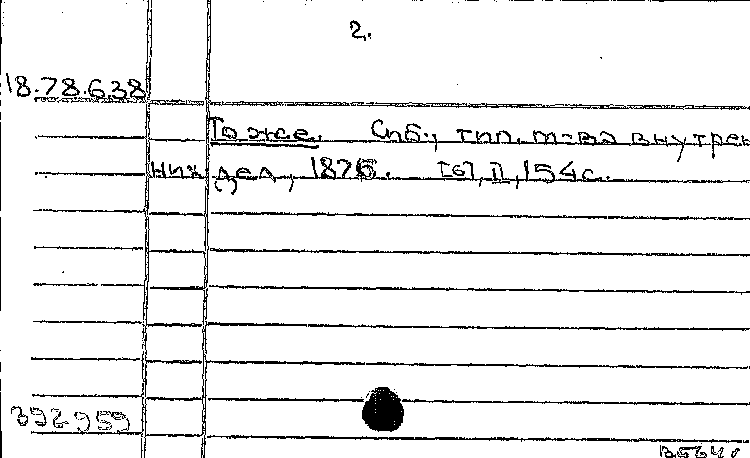 2.
18.78.638
То же. Спб., тип. м-ва внутрен
них дел, 1876. [6], II, 154с.
392959